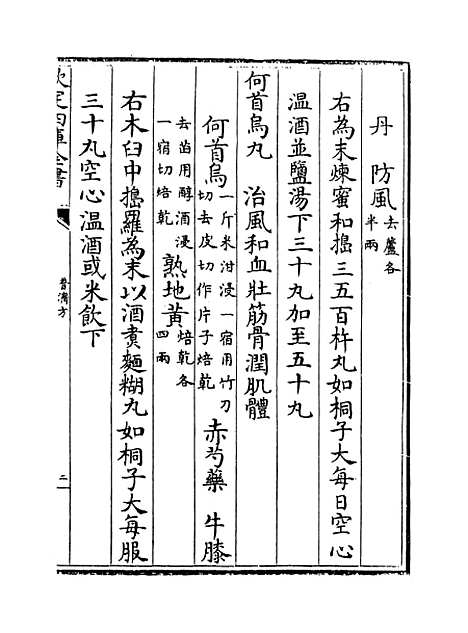 丹　防風去蘆各半兩
右為末煉蜜和搗三五百杵丸如桐子大每日空心
溫酒並鹽湯下三十丸加至五十丸
何首烏丸　治風和血壯筋骨潤肌體
何首烏一斤米泔浸一宿用竹刀切去皮切作片子焙乾　赤芍藥　牛膝
去苗用醇酒浸一宿切焙乾　熟地黃焙乾各四兩
右木臼中搗羅為末以酒煑麵糊丸如桐子大每服
三十丸空心溫酒或米飲下
欽定四庫全書
普濟方
二